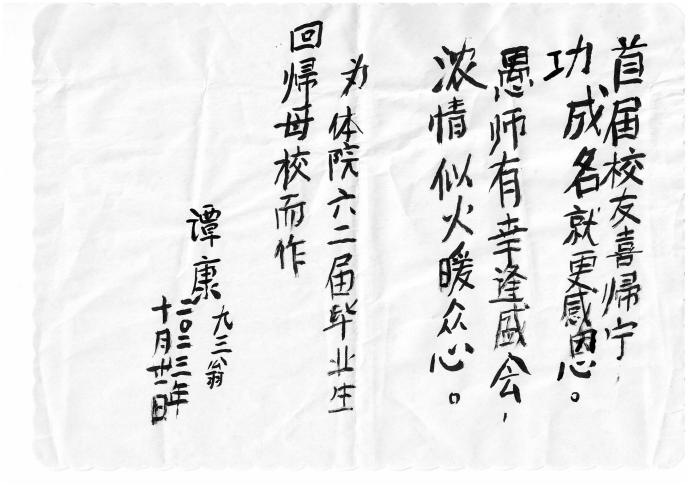 首届校友喜归宁，
功成名就更感恩。
愚师有幸逢盛会，
浓情似火暖众心。
为体院六二届毕业生
回归母校而作
谭康九三翁
二〇二三年
十月廿一日